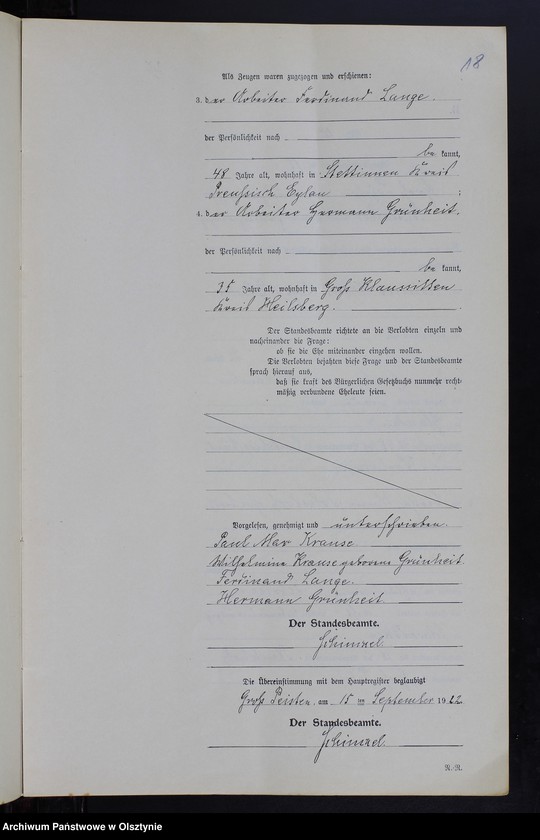 18
Als Zeugen waren zugezogen und erschienen:
3. der Arbeiter Ferdinand Lange.
der Persönlichkeit nach
be kannt,
48 Jahre alt, wohnhaft in Stettinnen Kreis
Preußisch Eylau ;
4. der Arbeiter Hermann Grünheit,
der Persönlichkeit nach
be kannt,
35 Jahre alt, wohnhaft in Groß Klaussitten
Kreis Heilsberg.
Der Standesbeamte richtete an die Verlobten einzeln und
nacheinander die Frage:
ob sie die Ehe miteinander eingehen wollen.
Die Verlobten bejahten diese Frage und der Standesbeamte
sprach hierauf aus,
daß sie kraft des Bürgerlichen Gesetzbuchs nunmehr recht-
mäßig verbundene Eheleute seien.
Vorgelesen, genehmigt und unterschrieben
Paul Max Krause
Wilhelmine Krause geborene Grünheit.
Ferdinand Lange.
Hermann Grünheit.
Der Standesbeamte.
Schimmel
Die Übereinstimmung mit dem Hauptregister beglaubigt
Groß Peisten, am 15 ten September 1922
Der Standesbeamte.
Schimmel
R.-R.
Archiwum Państwowe w Olsztynie